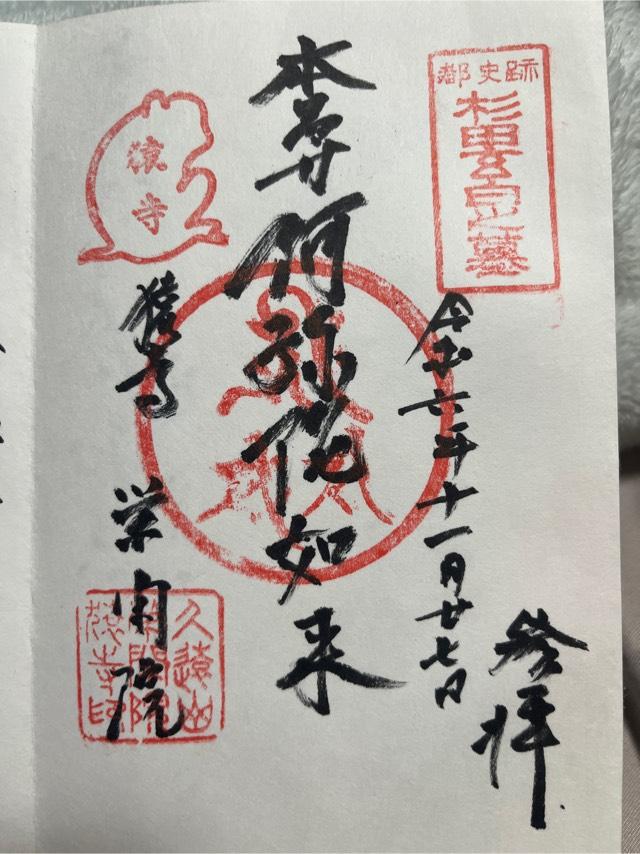 都史跡
杉田玄白之墓
参拝
令和六年十一月廿七日
本尊阿弥陀如来
猿寺
猿寺 栄閑院
久遠山
榮閑院
猿寺印